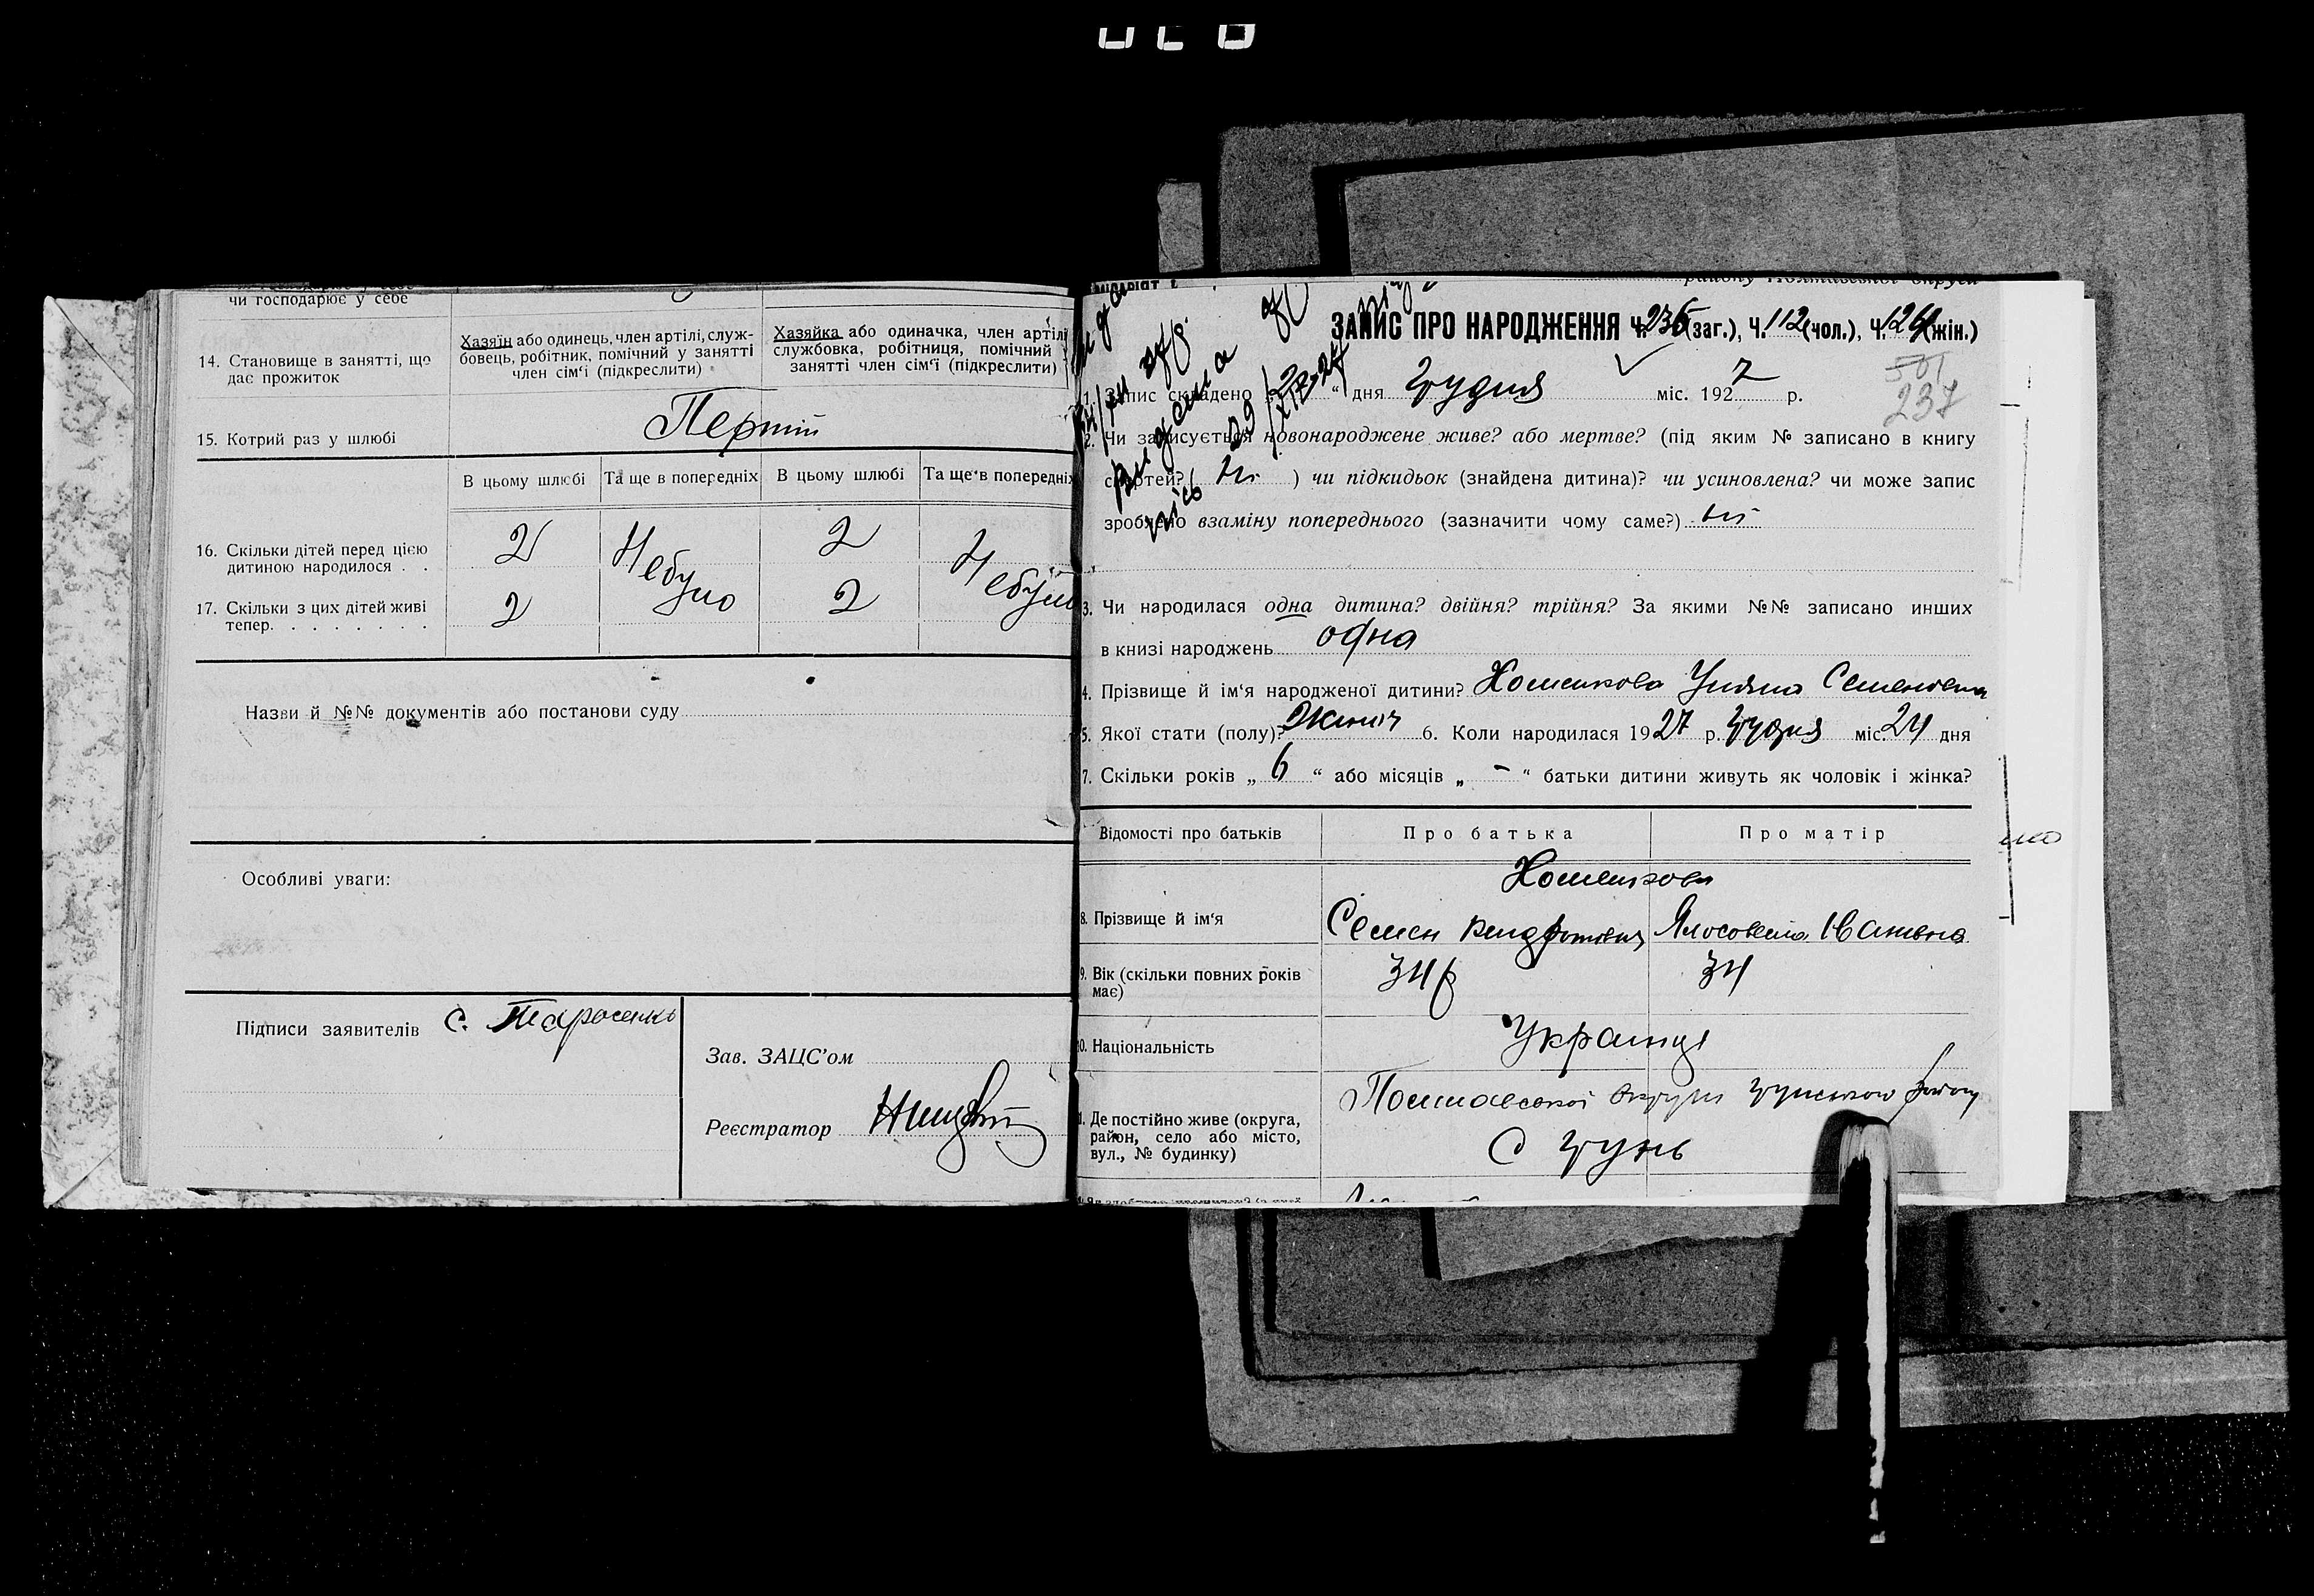 чи господарює у себе
14. Становище в занятті, що дає прожиток
Хазяїн або одинець, член артілі, службовець, робітник, помічний у занятті член сім'ї (підкреслити)
Хазяйка або одиначка, член артілі службовка, робітниця, помічний занятті член сім'ї (підкреслити)
15. Котрий раз у шлюбі Перший
В цьому шлюбі Та ще в попередніх В цьому шлюбі Та ще в попередніх
16. Скільки дітей перед цією дитиною народилося . . 2 Небуло 2 Небуло
17. Скільки з цих дітей живі тепер. . . . . . . . 2 2
Назви й №№ документів або постанови суду
Особливі уваги:
Підписи заявителів С. Тарасенко
Зав. ЗАЦС'ом
Реєстратор
району Полтавської округи
ЗАПИС ПРО НАРОДЖЕННЯ Ч. 236 (заг.), Ч. 112 (чол.), Ч. 124 (жін.)
501
237
1. Запис складено “ дня Грудня міс. 1927 р.
2. Чи записується новонароджене живе? або мертве? (під яким № записано в книгу
смертей? ( ні ) чи підкидьок (знайдена дитина)? чи усиновлена? чи може запис
зроблено взаміну попереднього (зазначити чому саме?) ні
3. Чи народилася одна дитина? двійня? трійня? За якими №№ записано инших
в книзі народжень одна
4. Прізвище й ім'я народженої дитини? Уляна Семеновна
5. Якої стати (полу)? жіноч 6. Коли народилася 1927 р. Грудня міс. 24 дня
7. Скільки років „ 6 “ або місяців „ - “ батьки дитини живуть як чоловік і жінка?
Відомості про батьків Про батька Про матір
8. Прізвище й ім'я Семен Івановна
9. Вік (скільки повних років має) 34 р 34
10. Національність Українці
11. Де постійно живе (округа, район, село або місто, вул., № будинку) Полтавської округи Грунського району
с Грунь